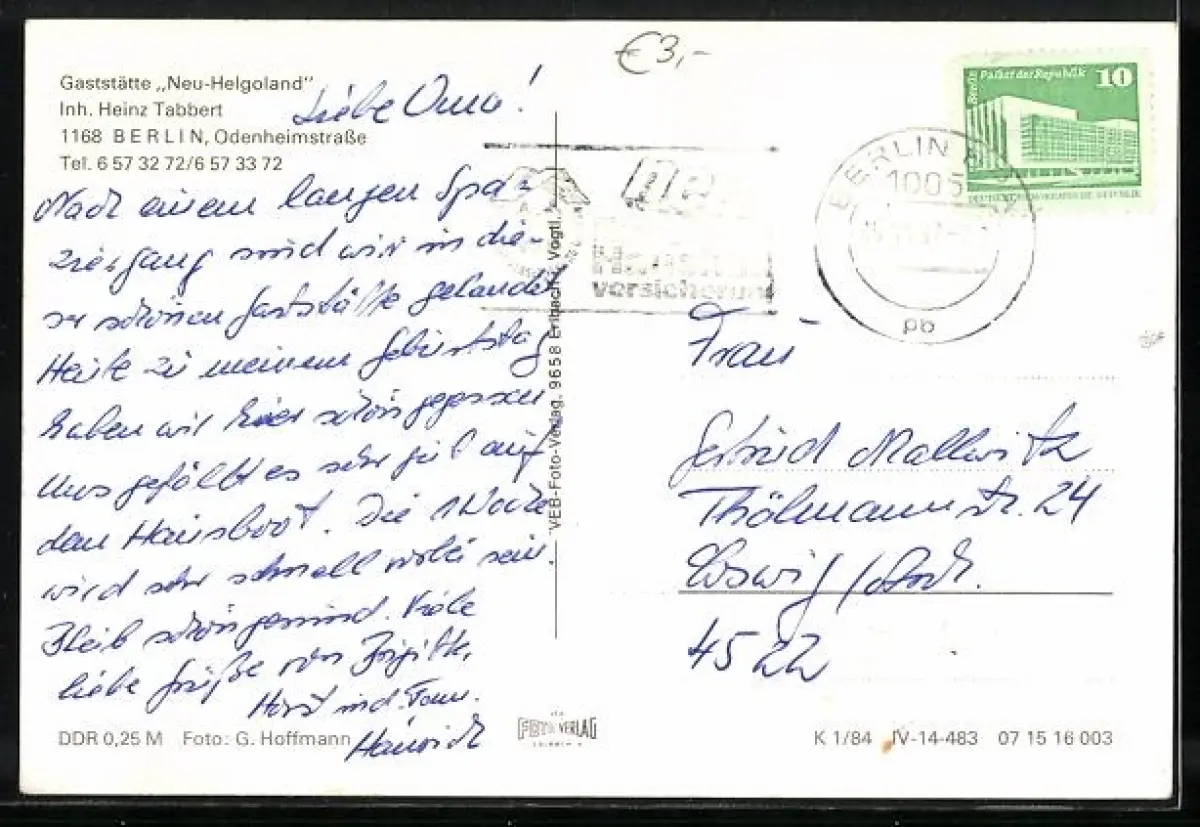 €3,-
Gaststätte „Neu-Helgoland"
Inh. Heinz Tabbert
1168 BERLIN, Odenheimstraße
Tel. 6 57 32 72/6 57 33 72
Liebe Oma!
Nach einem langen Spa-
ziergang sind wir in die-
ser schönen Gaststätte gelandet
Heute zu meinem Geburtstag
haben wir hier schön gegessen
Uns gefällt es sehr gut auf
dem Hausboot. Die 1 Woche
wird sehr schnell vorbei sein.
Bleib schön gesund. Viele
liebe Grüße von Brigitte,
Horst und Fam.
Hainich
VEB-Foto-Verlag, 9658 Erlbach i. Vogtl.
Berlin Palast der Republik 10
DEUTSCHE DEMOKRATISCHE REPUBLIK
BERLIN
1005
pb
versicherung
Frau
Gertrud Mallwitz
Thälmannstr. 24
Coswig/Anh.
4522
DDR 0,25 M Foto: G. Hoffmann
FOTO VERLAG
K 1/84 IV-14-483 07 15 16 003